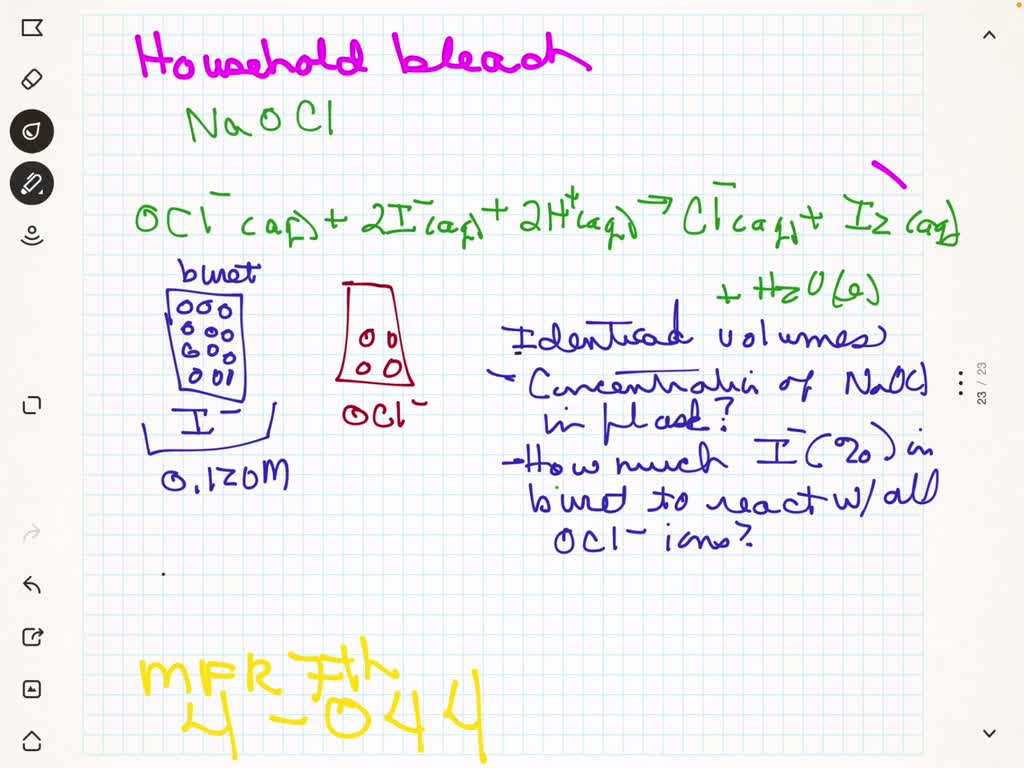 Household bleach
NaOCl
OCl⁻(aq) + 2I⁻(aq) + 2H⁺(aq) → Cl⁻(aq) + I2(aq)
+ H2O(l)
buret
I⁻
0.120M
OCl⁻
Identical volumes
- Concentration of NaOCl
in flask?
- How much I⁻(%) in
buret to react w/ all
OCl⁻ ions?
MFR 7th
4-044
23 / 23